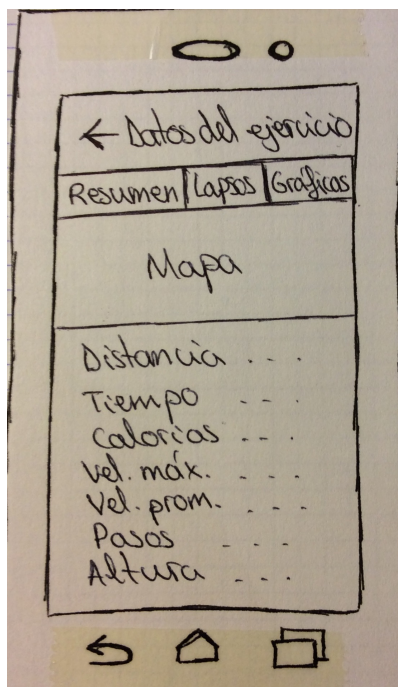 ← Datos del ejercicio
Resumen Lapsos Gráficas
Mapa
Distancia . . .
Tiempo - - -
Calorías - - .
Vel. máx. - - -
Vel. prom. - - -
Pasos - - -
Altura - - -